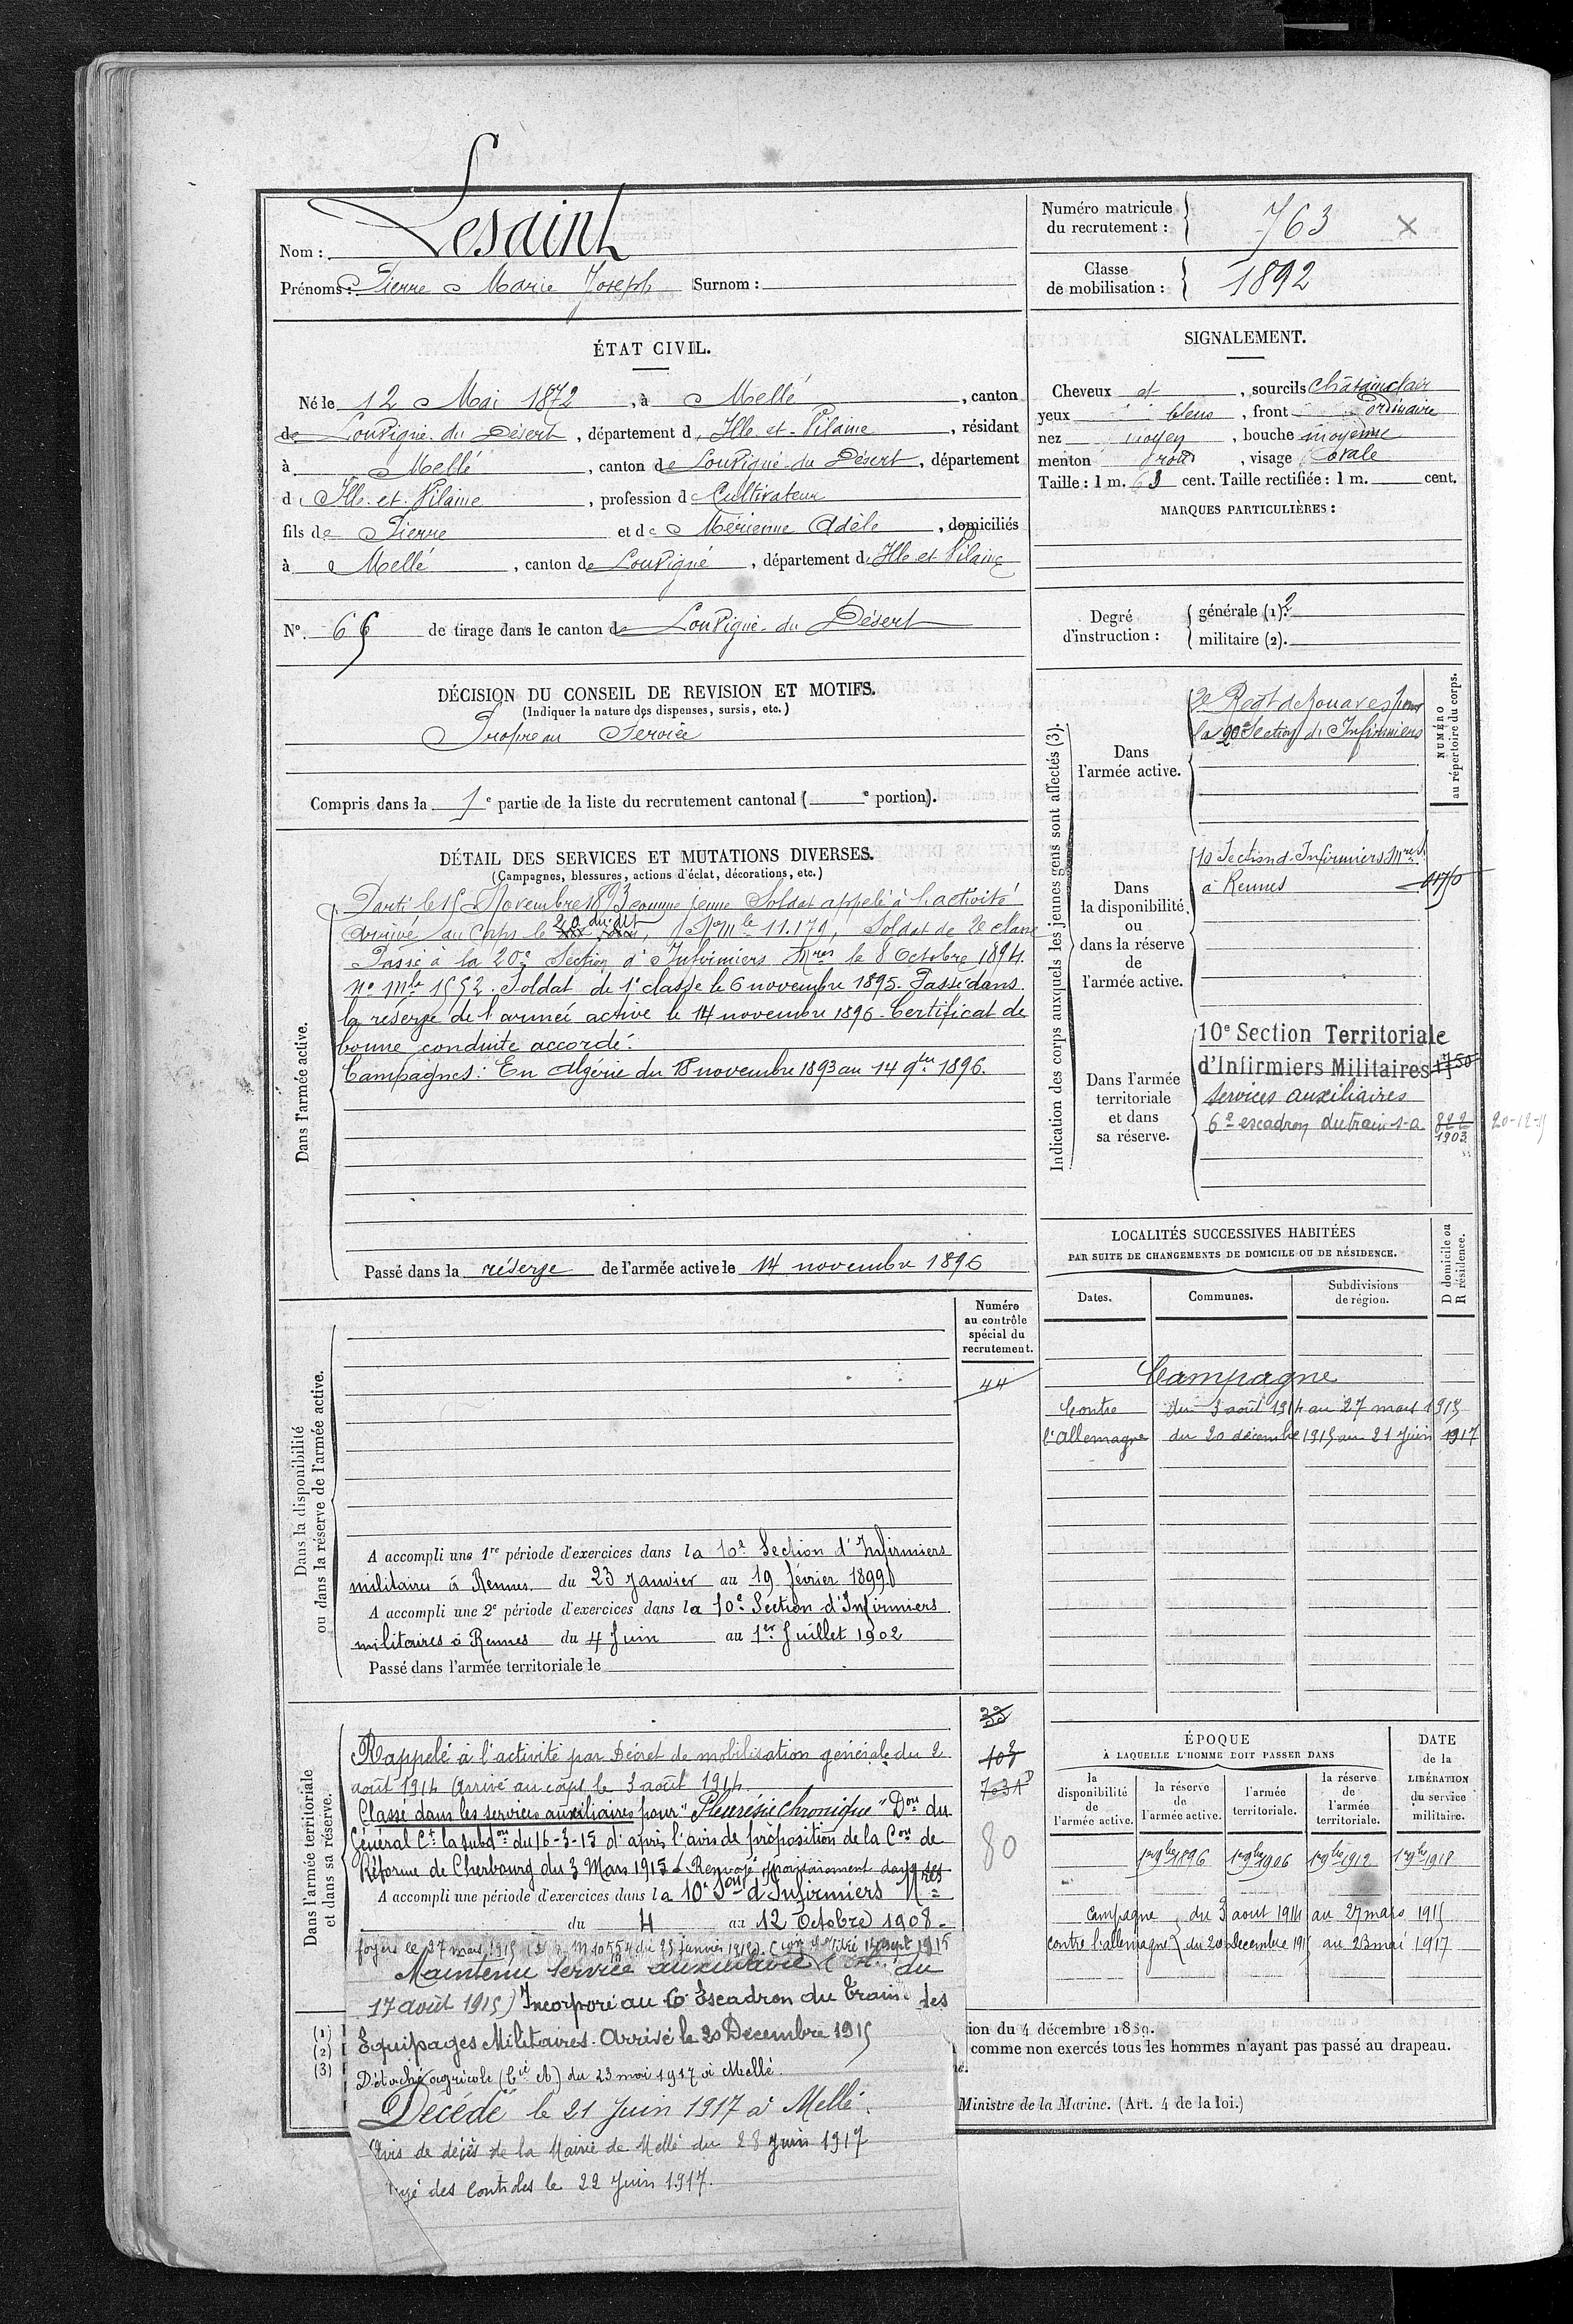 Nom : Lesaint
Prénoms : Pierre Marie Joseph Surnom :
Numéro matricule du recrutement : 763
Classe de mobilisation : 1892
ÉTAT CIVIL.
Né le 12 Mai 1872, à Mellé, canton
de Louvigné du Désert, département d Ille et Vilaine, résidant
à Mellé, canton de Louvigné du Désert, département
d Ille et Vilaine, profession de Cultivateur
fils de Pierre et de Mérienne Adèle, domiciliés
à Mellé, canton de Louvigné, département d Ille et Vilaine
N°. 65 de tirage dans le canton de Louvigné du Désert
SIGNALEMENT.
Cheveux et, sourcils châtain clair
yeux bleus, front ordinaire
nez moyen, bouche moyenne
menton rond, visage ovale
Taille : 1 m. 63 cent. Taille rectifiée : 1 m. cent.
MARQUES PARTICULIÈRES :
Degré d'instruction :
générale (1). 2
militaire (2).
DÉCISION DU CONSEIL DE REVISION ET MOTIFS.
(Indiquer la nature des dispenses, sursis, etc.)
Propre au Service
Compris dans la 1e partie de la liste du recrutement cantonal ( e portion).
DÉTAIL DES SERVICES ET MUTATIONS DIVERSES.
(Campagnes, blessures, actions d'éclat, décorations, etc.)
Dans l'armée active.
Parti le 15 Novembre 1893 comme jeune Soldat appelé à l'activité
Arrivé au Corps le 20 du dit, No Mle 11.179, Soldat de 2e classe
Passé à la 20e Section d'Infirmiers Mres le 8 Octobre 1894.
No Mle 1552. Soldat de 1e classe le 6 novembre 1895. Passé dans
la réserve de l'armée active le 14 novembre 1896. Certificat de
bonne conduite accordé.
Campagnes : En Algérie du 18 novembre 1893 au 14 9bre 1896.
Passé dans la réserve de l'armée active le 14 novembre 1896
Indication des corps auxquels les jeunes gens sont affectés (3).
NUMÉRO au répertoire du corps.
Dans l'armée active.
2e Regt de Zouaves
la 20e Section d'Infirmiers
Dans la disponibilité ou dans la réserve de l'armée active.
10 Section d'Infirmiers Mres
à Rennes
Dans l'armée territoriale et dans sa réserve.
10e Section Territoriale
d'Infirmiers Militaires 1750
Services auxiliaires
6e escadron du train s-a 822
1903
20-12-15
LOCALITÉS SUCCESSIVES HABITÉES
PAR SUITE DE CHANGEMENTS DE DOMICILE OU DE RÉSIDENCE.
Dates. Communes. Subdivisions de région. D domicile ou R résidence.
Campagne
Contre du 3 août 1914 au 27 mars 1915
l'Allemagne du 20 décembre 1915 au 21 Juin 1917
Dans la disponibilité ou dans la réserve de l'armée active.
Numéro au contrôle spécial du recrutement.
44
A accompli une 1re période d'exercices dans la 10e Section d'Infirmiers
militaires à Rennes du 23 Janvier au 19 février 1899
A accompli une 2e période d'exercices dans la 10e Section d'Infirmiers
militaires à Rennes du 4 Juin au 1er Juillet 1902
Passé dans l'armée territoriale le
Dans l'armée territoriale et dans sa réserve.
80
Rappelé à l'activité par Décret de mobilisation générale du 2
août 1914 Arrivé au corps le 3 août 1914.
Classé dans les services auxiliaires pour "Pleurésie chronique" Don du
Général Ct la subdon du 16-3-15 d'après l'avis de proposition de la Con de
Réforme de Cherbourg du 3 Mars 1915. Renvoyé provisoirement dans ses
A accompli une période d'exercices dans la 10e Son d'Infirmiers Mres
du 4 au 12 Octobre 1908.
foyers le 27 mars 1915
Maintenu service auxiliaire du
17 août 1915) Incorporé au 6e Escadron du Train des
Equipages Militaires. Arrivé le 20 Décembre 1915
Détaché agricole (Cie A) du 23 mai 1917 à Mellé.
Décédé le 21 Juin 1917 à Mellé.
Avis de décès de la Mairie de Mellé du 28 Juin 1917
des Contrôles le 22 Juin 1917.
ÉPOQUE
À LAQUELLE L'HOMME DOIT PASSER DANS
DATE de la LIBÉRATION du service militaire.
la disponibilité de l'armée active.
la réserve de l'armée active.
l'armée territoriale.
la réserve de l'armée territoriale.
1er 9bre 1896 1er 9bre 1906 1er 9bre 1912 1er 9bre 1918
Campagne du 3 août 1914 au 27 mars 1915
contre l'allemagne du 20 décembre 1915 au 23 mai 1917
(1)
(2)
(3)
ion du 4 décembre 1889.
comme non exercés tous les hommes n'ayant pas passé au drapeau.
Ministre de la Marine. (Art. 4 de la loi.)